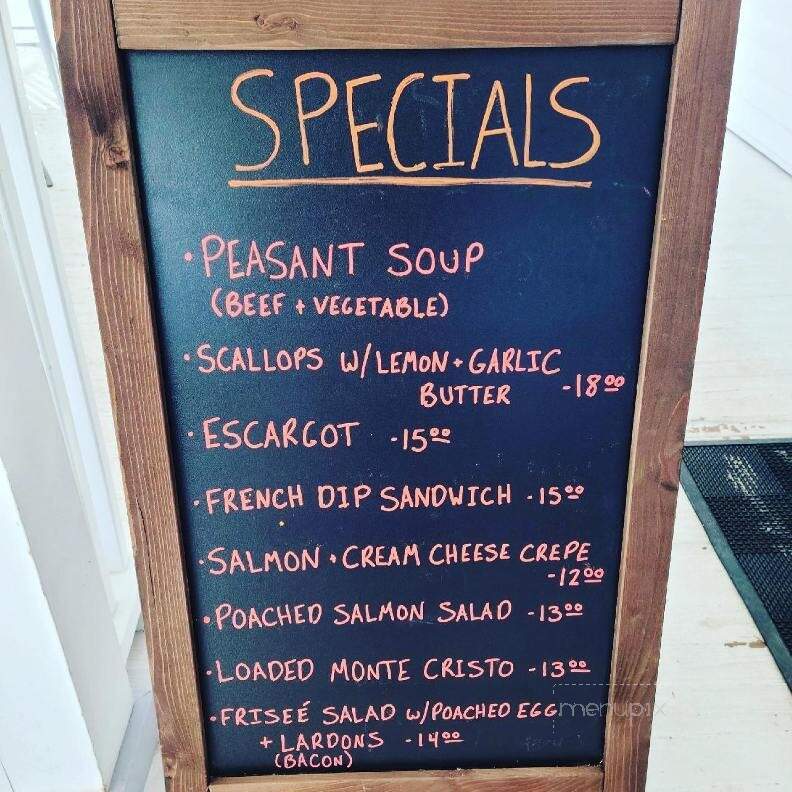 SPECIALS
• PEASANT SOUP
(BEEF + VEGETABLE)
• SCALLOPS W/LEMON + GARLIC
BUTTER -18 00
• ESCARGOT -15 00
• FRENCH DIP SANDWICH -15 00
• SALMON + CREAM CHEESE CREPE
-12 00
• POACHED SALMON SALAD -13 00
• LOADED MONTE CRISTO -13 00
• FRISEÉ SALAD W/POACHED EGG
+ LARDONS -14 00
(BACON)
menupix